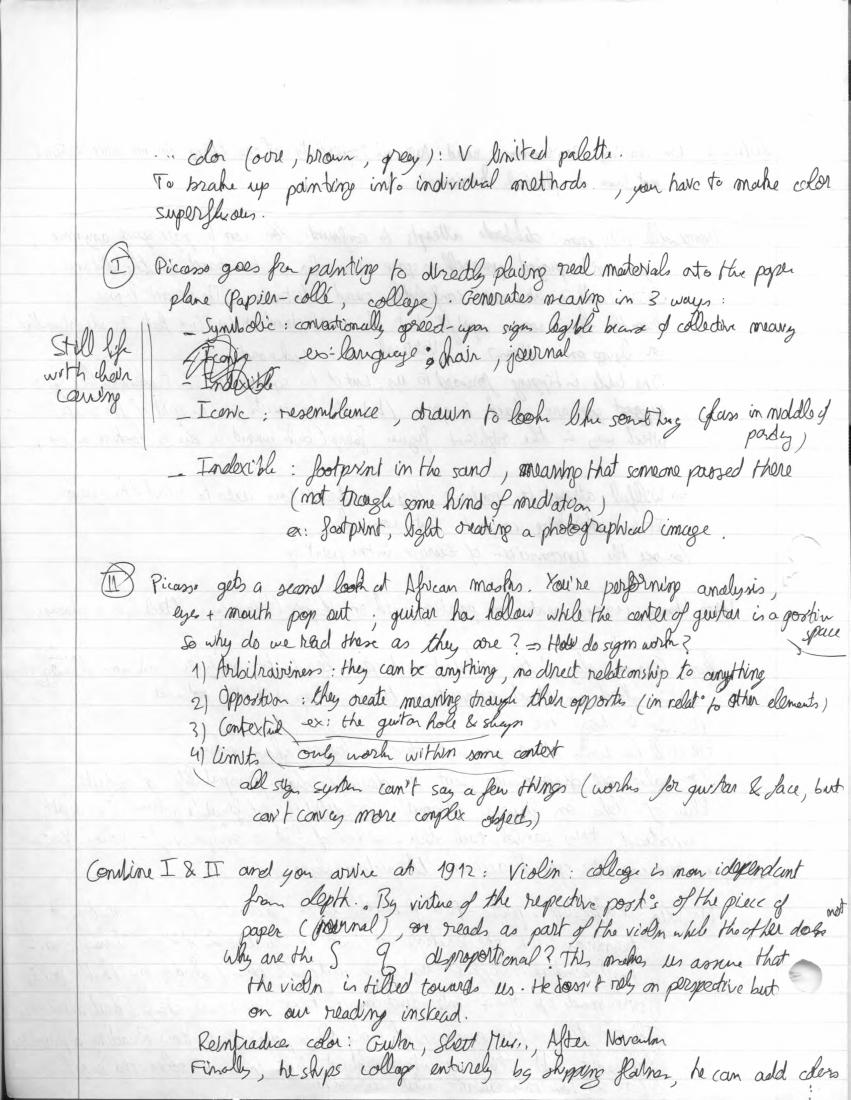 ... color (ocre, brown, grey): V limited palette.
To brake up painting into individual methods ..., you have to make color
superfluous.
I Picasso goes from painting to directly placing real materials onto the paper
plane (Papier-collé collage). Generates meaning in 3 ways:
- Symbolic: conventionally agreed-upon sign legible because of collective meaning
ex: language: chair, journal
Iconic
- Indexible
Still life
with chair
cawing
- Iconic: resemblance, drawn to look like something (glass in middle of
- Indexible: footprint in the sand, meaning that someone passed there
(not trough some kind of mediation)
ex: footprint, light creating a photographical image.
II Picasso gets a second look at African masks. You're performing analysis,
eyes + mouth pop out; guitar has hollow while the center of guitar is a positive
space
So why do we read these as they are? ⇒ How do signs work?
1) Arbitrairiness: they can be anything, no direct relationship to anything
2) Opposition: they create meaning trough their opposites (in relat° to other elements)
3) Contextual ex: the guitar hole & shape
4) Limits only work within some context
sign system can't say a few things (works for guitar & face, but
can't convey more complex objects)
Combine I & II and you arrive at 1912: Violin: collage is now idependant
from depth. By virtue of the respective posit°s of the piece of
paper (journal), one reads as part of the violin while the other does not
Why are the disproportional? This makes us assume that
the violin is tilted towards us. He doesn't rely on perspective but
on our reading instead.
Reintroduce color: Guitar, Sheet Mus., After November
Finally, he skips collage entirely by skipping flatness, he can add colors